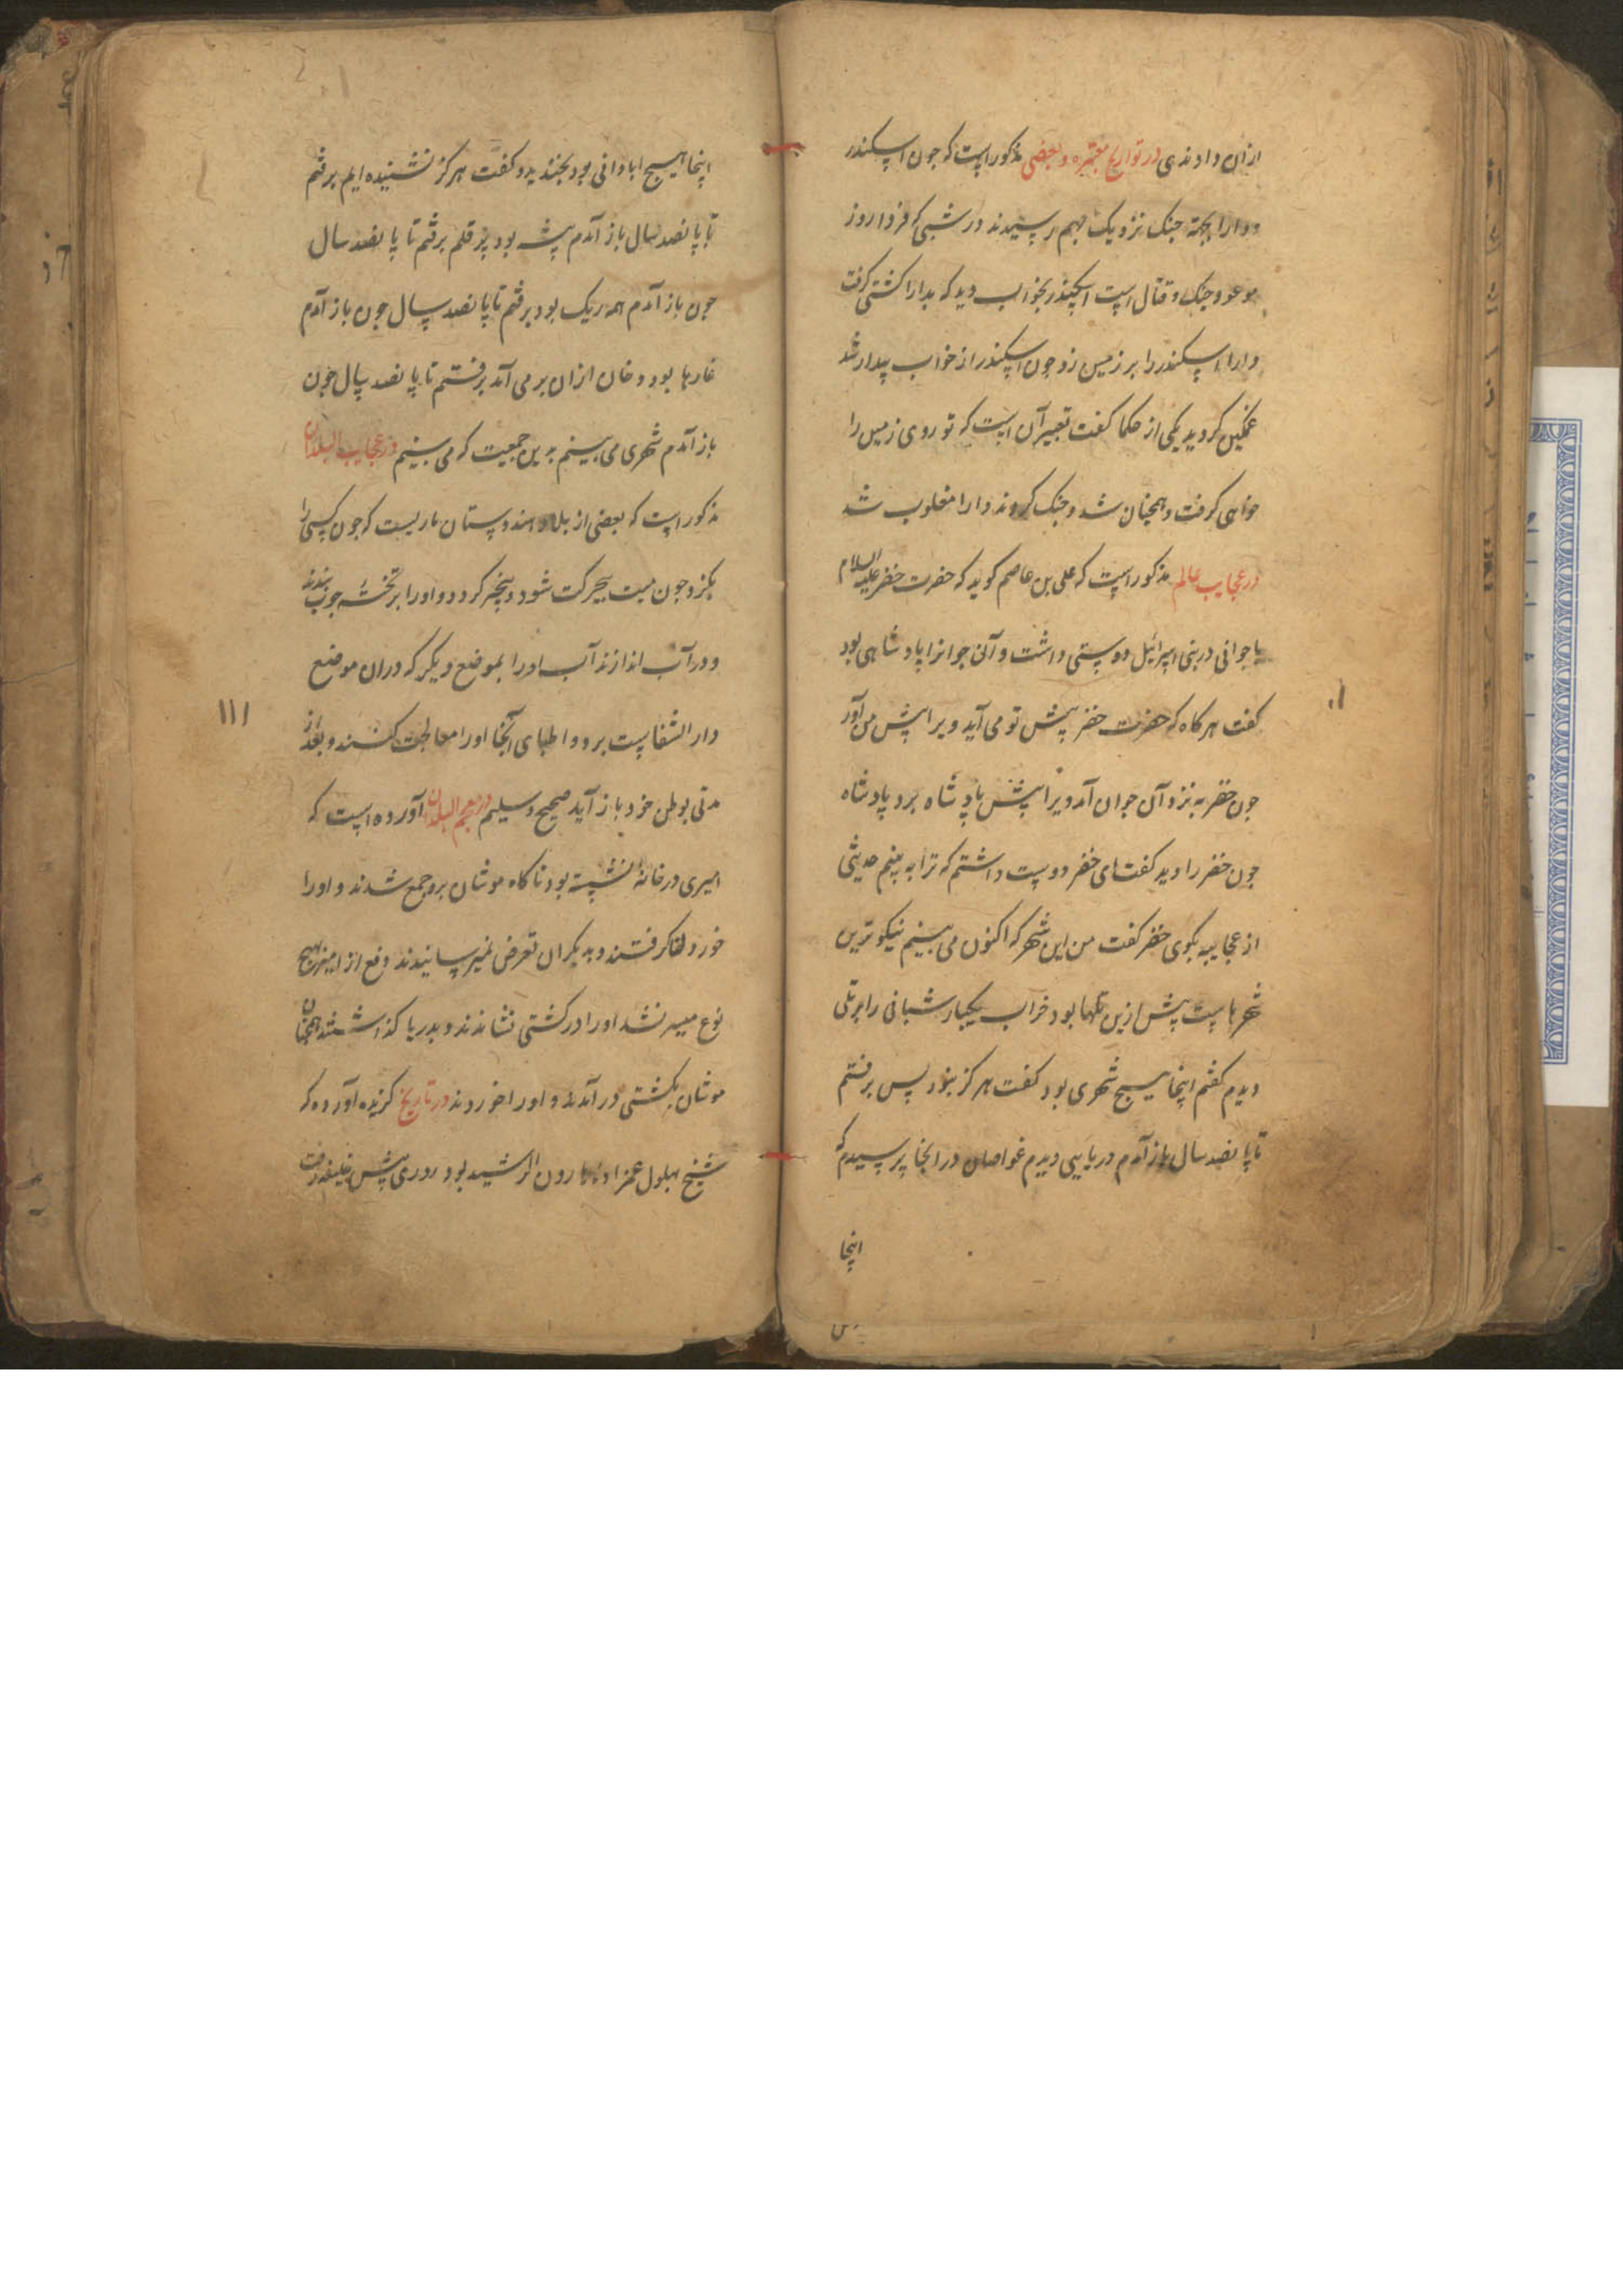 ازان دادندی در تواریخ معتبره و بعضی مذکور است که جون اسکندر
و دارا بجهة جنک نزدیک بهم رسیدند در شبی که فردا روز
موعود جنک و قتال است اسکندر بخواب دید که بدارا کشتی کرفت
دارا اسکندر را بر زمین زد جون اسکندر از خواب بیدار شد
غمکین کردید یکی از حکما کفت تعبیر آن است که تو روی زمین را
خواهی کرفت و همجنان شد و جنک کردند دارا مغلوب شد
در عجایب عالم مذکور است که علی بن عاصم کوید که حضرت خضر علیه السلام
با جوانی در بنی اسرائیل دوستی داشت و آن جوانرا پادشاهی بود
کفت هرکاه که حضرت خضر پیش تو می آید ویرا پیش من آور
جون خضر به نزد آن جوان آمد ویرا پیش پادشاه برد پادشاه
جون خضر را دید کفت ای خضر دوست داشتم که ترا به بینم حدیثی
از عجایبه بکوی خضر کفت من این شهر که اکنون می بینیم نیکوترین
شهرهاست پیش ازین تلها بود خراب یکبار شبانی را بر تلی
دیدم کفتم اینجا هیسج شهری بود کفت هرکز نبود پس برفتم
تا پانصد سال باز آمدم دریایی دیدم غواصان در انجا پرسیدم که
اینجا
اینجا هیسج ابادانی بود بخندید و کفت هرکز نشنیده ایم برفتم
تا پانصد سال باز آمدم پیشه بود پر قلم برفتم تا پانصد سال
جون باز آمدم همه ریک بود برفتم تا پانصد سال جون باز آمدم
غارها بود دخان ازان بر می آمد برفتم تا پانصد سال جون
باز آمدم شهری می بینم بدین جمعیت که می بینیم در عجایب البلدان
مذکور است که بعضی از بلاد هندوستان ماریست که جون کسی را
بکزد جون میت بیحرکت شود و بیخبر کردد و اورا بر تخته جوب بندند
و در آب اندازند آب اورا بموضع دیکر که دران موضع
دار الشفاست برد و اطبای آنجا اورا معالجت کنند و بعد از
مدتی بوطن خود باز آید صحیح و سلیم در معجم البلدان آورده است که
امیری در خانه نشسته بود ناکاه موشان برو جمع شدند و اورا
خوردن کرفتند و بدیکران تعرض نمیرسانیدند دفع از امیر بهیج
نوع میسر نشد اورا در کشتی نشاندند و بدریا کذاشتند همجنان
موشان بکشتی در آمدند و اورا خوردند در تاریخ کزیده آورده که
شیخ بهلول عمزاده هارون الرشید بود روزی پیش خلیفه رفت
١١١